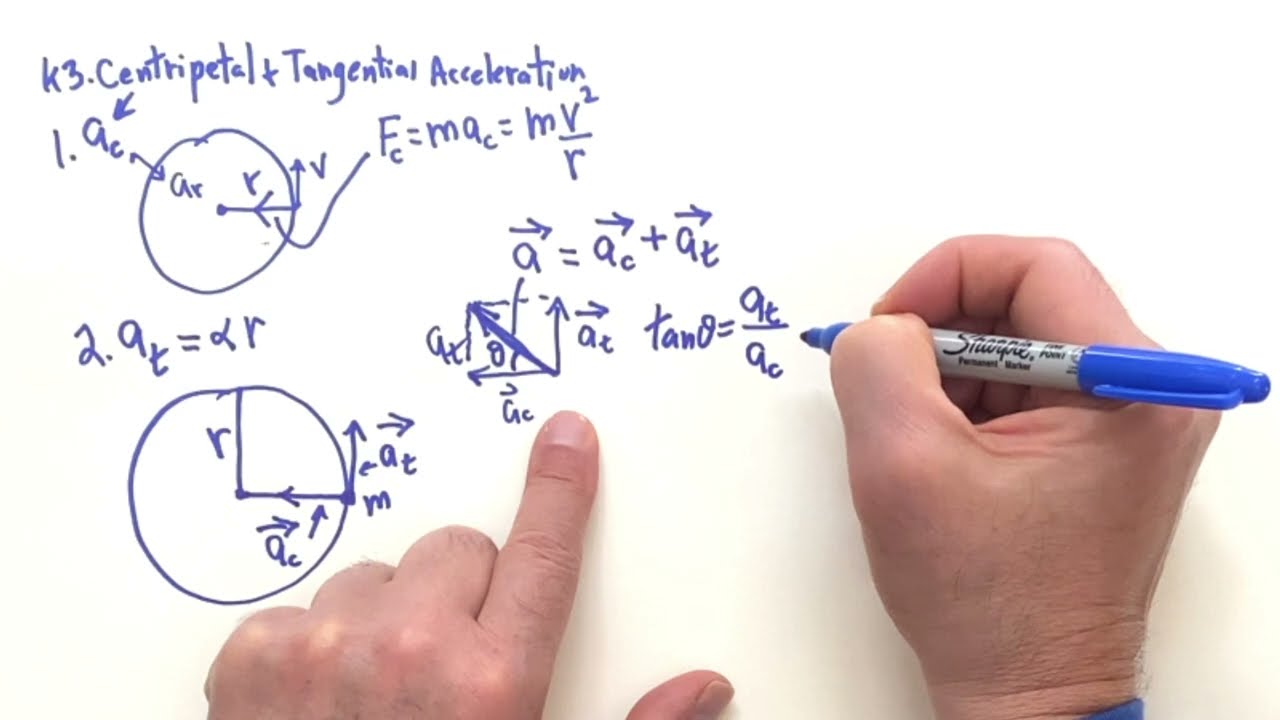 k3. Centripetal & Tangential Acceleration
1. ac
ar
r
v
Fc = mac = m v²/r
a⃗ = a⃗c + a⃗t
2. at = αr
at
θ
a⃗t
a⃗c
tanθ = at/ac
r
a⃗t
m
a⃗c
Sharpie.
FINE POINT
Permanent Marker